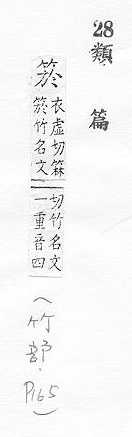 28類 篇
箊 衣虛切箖 切竹名文
箊竹名文 一重音四
(竹部.
P165)